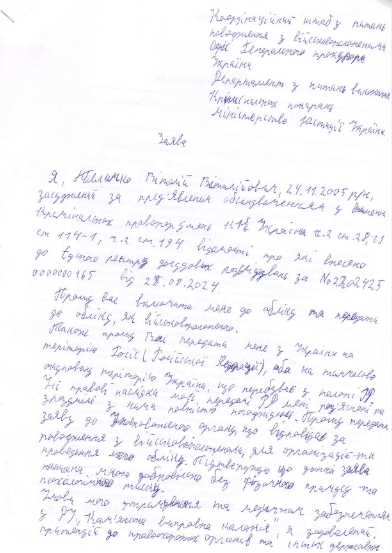 Координаційний штаб з питань
поводження з військовополоненими
Офіс Генерального прокурора
України
Департамент з питань виконання
Кримінальних покарань
Міністерство юстиції України
Заява
Я, Віталій Віталійович, 24.11.2005 р.н.,
засуджений за пред'явленим обвинуваченням у
Кримінальних правопорушень України ч.1 ст.28, ч.1
ст 114-1, ч.2 ст.194 відомості про які внесено
до Єдиного реєстру досудових розслідувань за №2202425
0000000165 від 28.08.2024
Прошу вас включити мене до обліку та передати
до обліку, як військовополоненого.
Також прошу Вас передати мене з України на
територію Росії (Російської Федерації), або на тимчасово
окуповану територію України, що перебуває у
Усі правові наслідки моєї передачі РФ мені роз'яснені та
зрозумілі з ними повністю погоджуюсь. Прошу передати
заяву до Уповноваженого органу, що відповідає за
поводження з військовополоненими, для організації та
проведення мого обліку. Підтверджую що данна заява
написана мною добровільно без фізичного примусу та
психологічного тиску.
Умови мого утримання та медичним забезпеченням
у ДУ "Кам'янська виправна колонія", я задоволений.
претензій до правоохоронних органів та інших державних